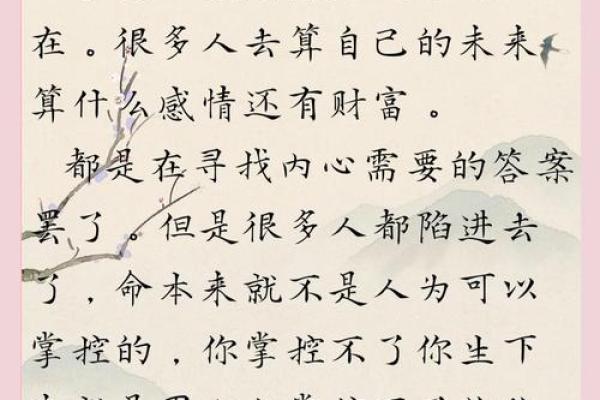 在。很多人去算自己的未来
算什么感情还有财富 。
都是在寻找内心需要的答案
罢了。但是很多人都陷进去
了，命本来就不是人为可以
掌控的，你掌控不了你生下